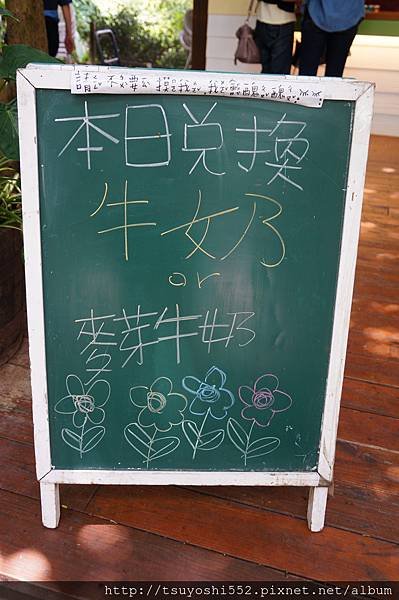 請勿不要摸我 我會醜醜
本日兌換
牛奶
or
麥芽牛奶
http://tsuyoshi552.pixnet.net/album